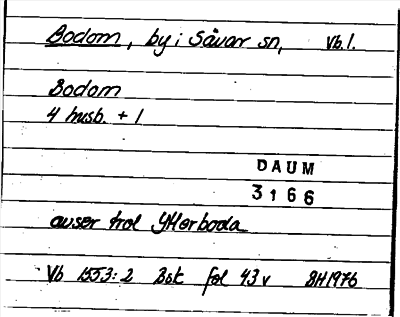 Bodom, by i Sävar sn, Vb.l.
Bodom
4 husb. + 1
DAUM
3166
avser trol Ytterboda
Vb 1553:2 Bsk fol 43 v BH1976